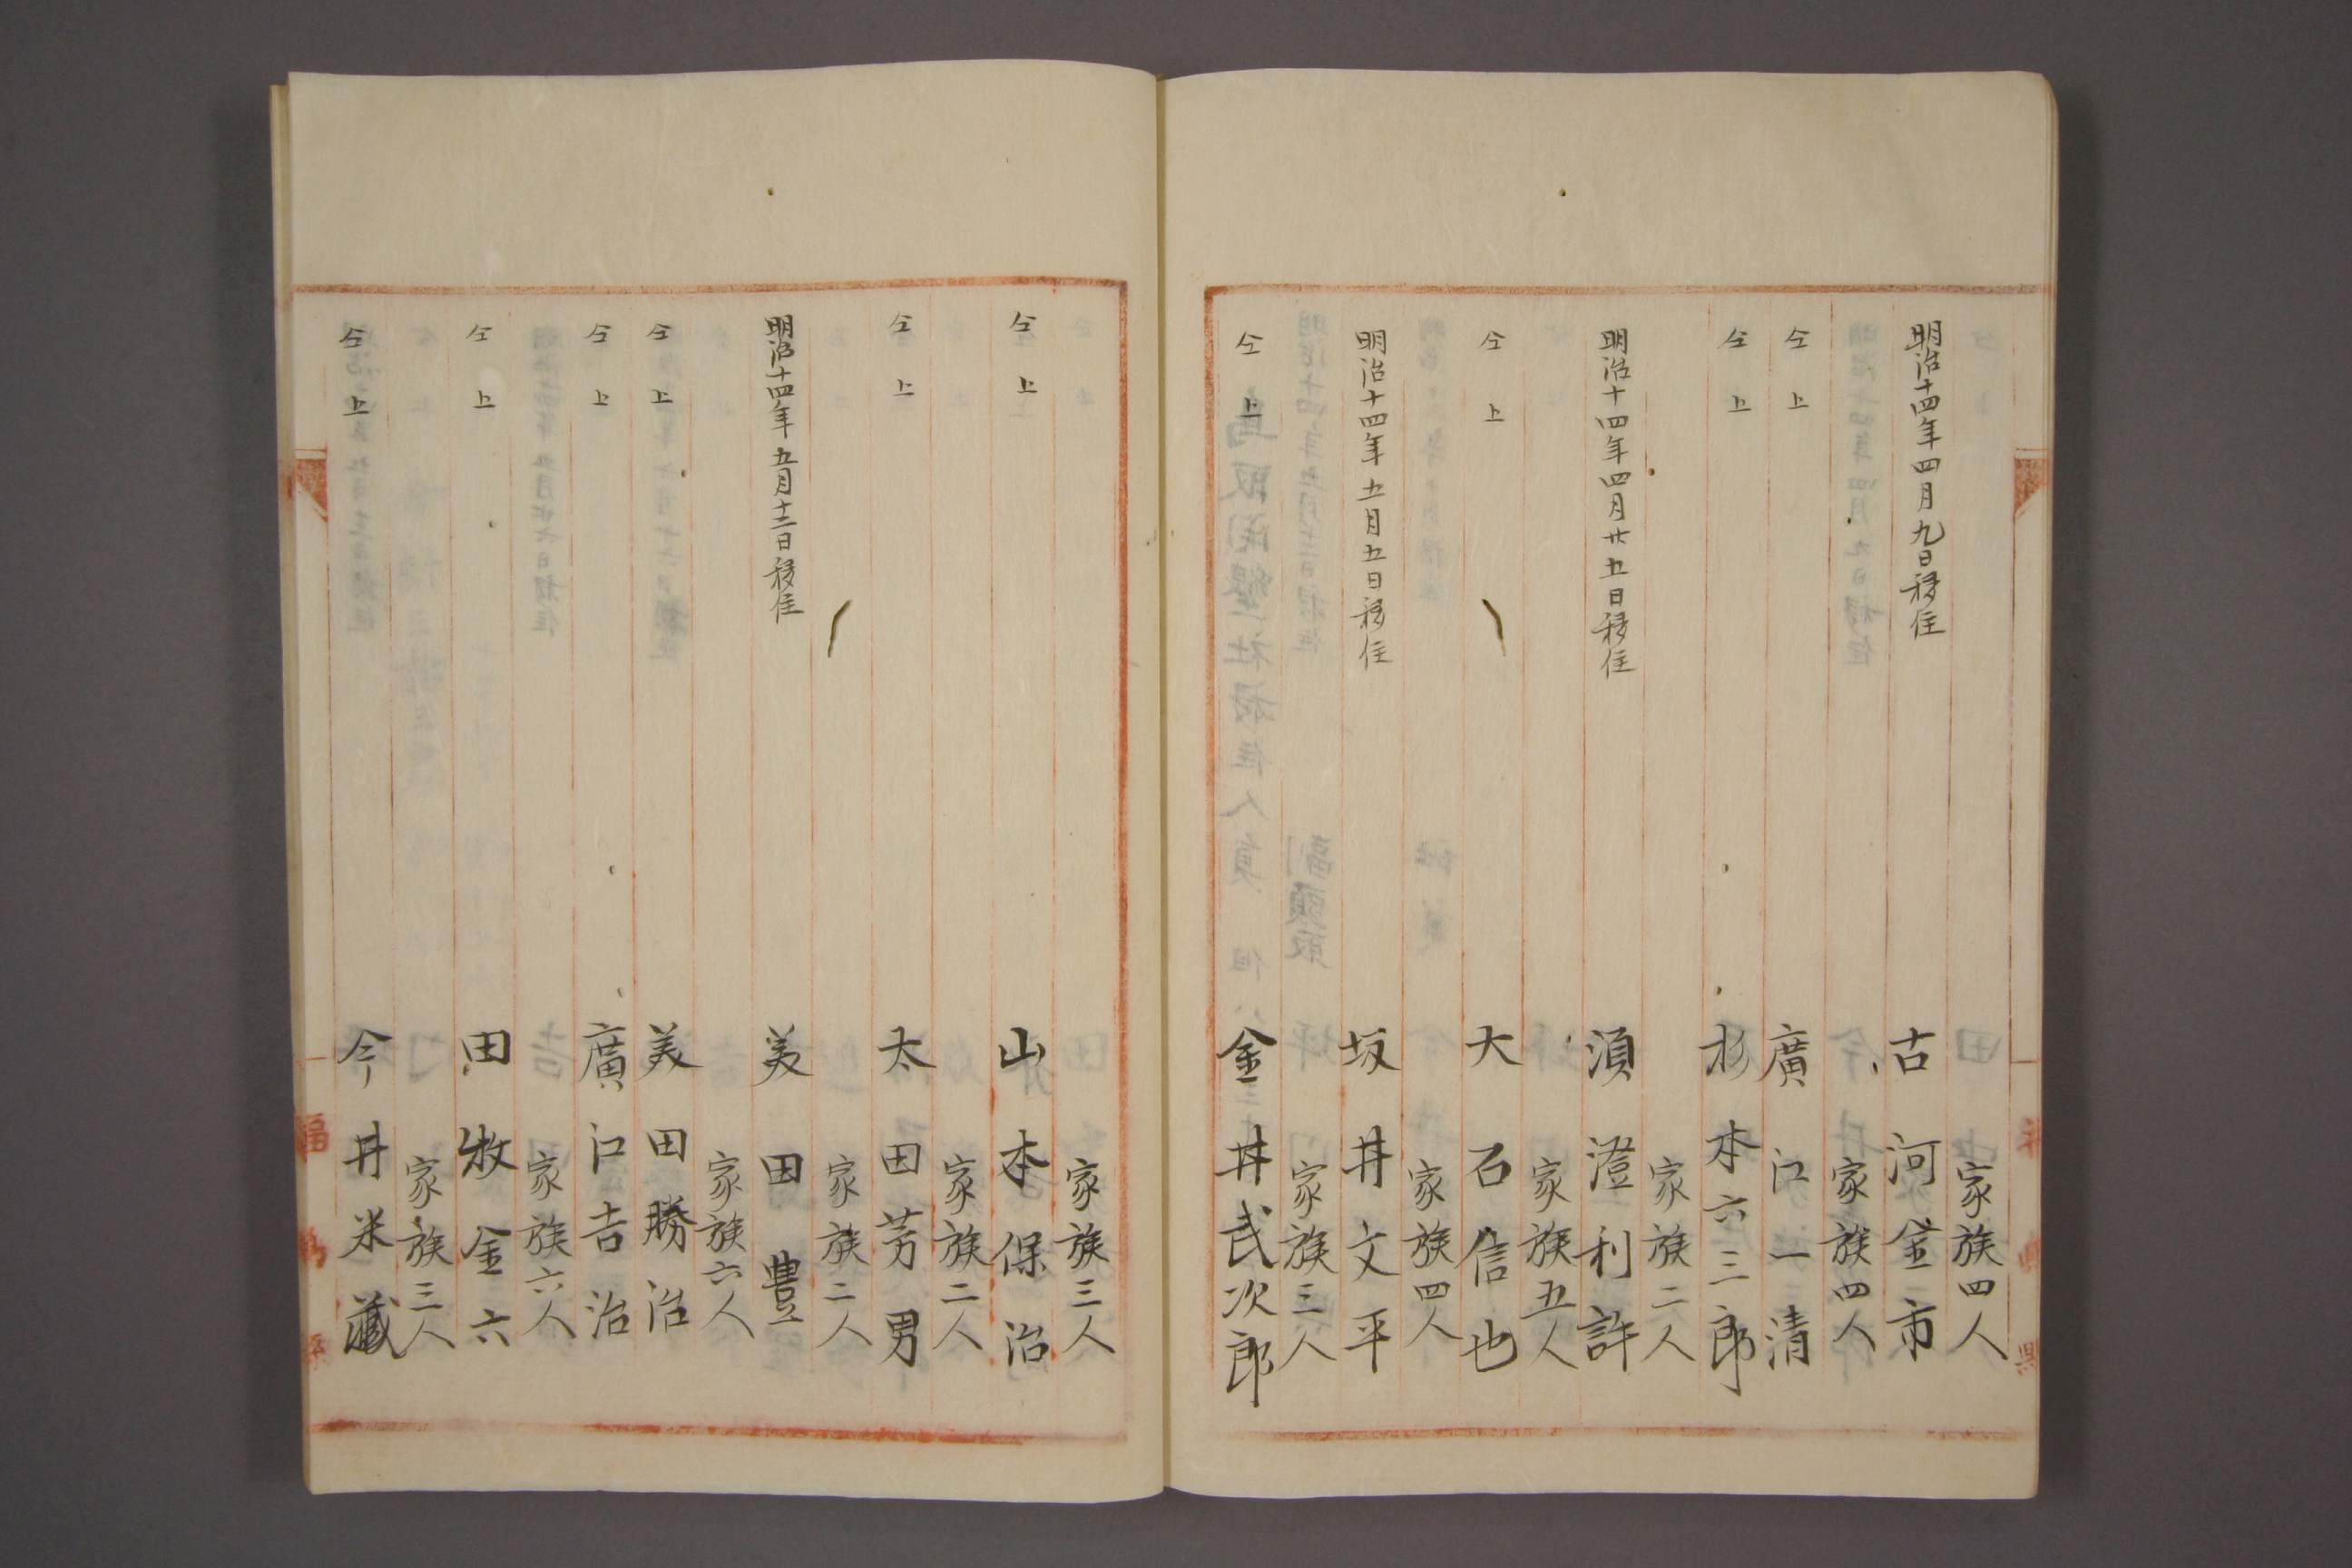 家族四人
明治十四年四月九日移住 古河金市
家族四人
仝上 廣江一清
仝上 杉本六三郎
家族二人
明治十四年四月廿五日移住 須澄利許
家族五人
仝上 大石信也
家族四人
明治十四年五月五日移住 坂井文平
家族三人
仝上 金井武次郎
家族三人
仝上 山本保治
家族二人
仝上 太田芳男
家族二人
明治十四年五月十二日移住 美田豊
家族六人
仝上 美田勝治
仝上 廣江吉治
家族六人
仝上 田牧金六
家族三人
仝上 今井米藏
福島縣